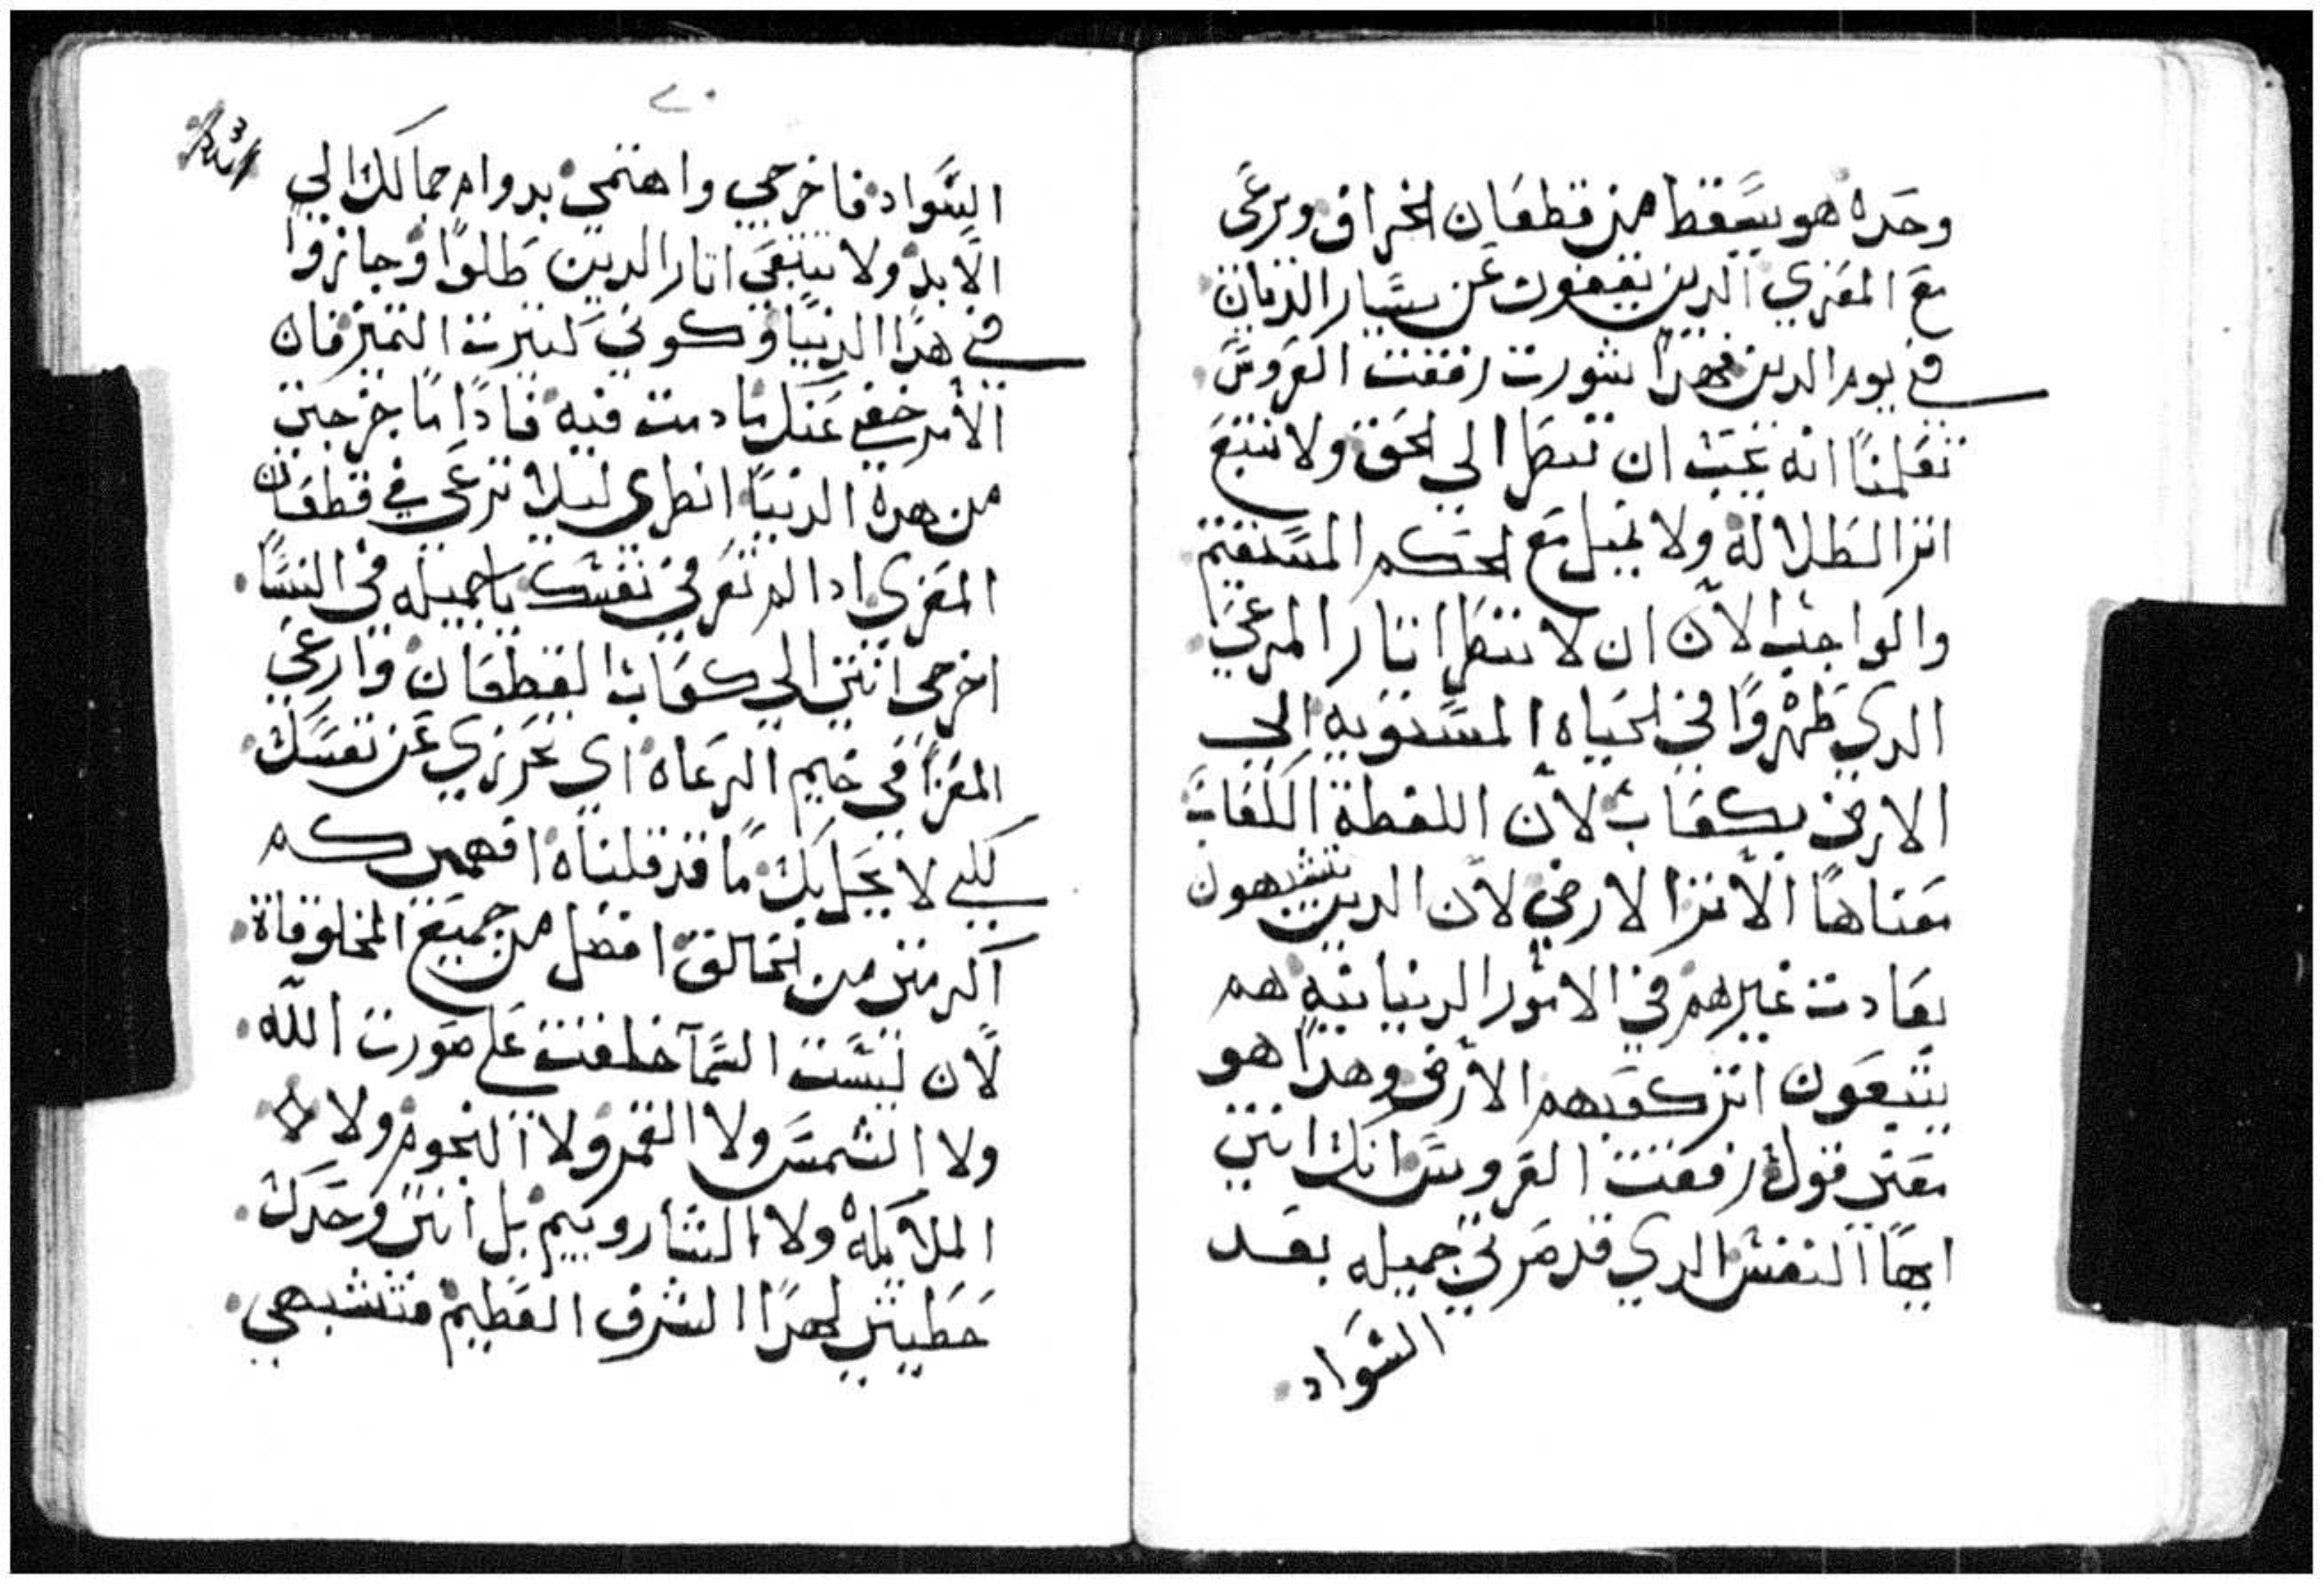 وحده هو يسقط من قطعان الخراف ويرعى
مع المعزي الدين يقفون عن يسار الديان
في يوم الدين فهدا مشورت رفقت العروس
تعلمنا انه يجب ان ننظر الي الحق ولا نتبع
اتر الطلالة ولا نميل مع الحكم المستقيم
والواجب الان ان لا ننظر اتار المرعي
الدي ظهروا في الحياه المستويه الي
الارض بكعاب لان اللفظة الكعاب
معناها الاتر الارضي لان الدين يتشبهون
بعادت غيرهم في الامور الدنيانيه هم
يتبعون اتر كعبهم الارضي وهدا هو
معني قول رفقت العروس انك انتي
ايها النفس الدي قد صرتي جميله بعد
السواد
٢٠
السواد فاخرجي واهتمي بدوام جمالك الي
الابد ولا تتبعي اتار الدين ظلوا وجازوا
في هدا الدنيا وكوني كتيرت التميز فان
الامر خفي عنك ما دمت فيه فادا ما خرجتي
من هدة الدنيا انطري ليلا ترعي في قطعان
المعزي ادا لم تعرفي نفسك يا جميله في النسا
اخرجي انتي الي كعاب القطعان وارعي
المعزا في خيم الرعاه اي تحرزي عن نفسك
لكي لا يحل بك ما قد قلناه افهمي كم
اكرمتي من الخالق افضل من جميع المخلوقاة
لان ليست السما خلقت علي صورت الله
ولا الشمس ولا القمر ولا النجوم ولا
الملايكة ولا الشاروبيم بل انتي وحدك
حظيتي لهدا الشرف العظيم فتشبهي